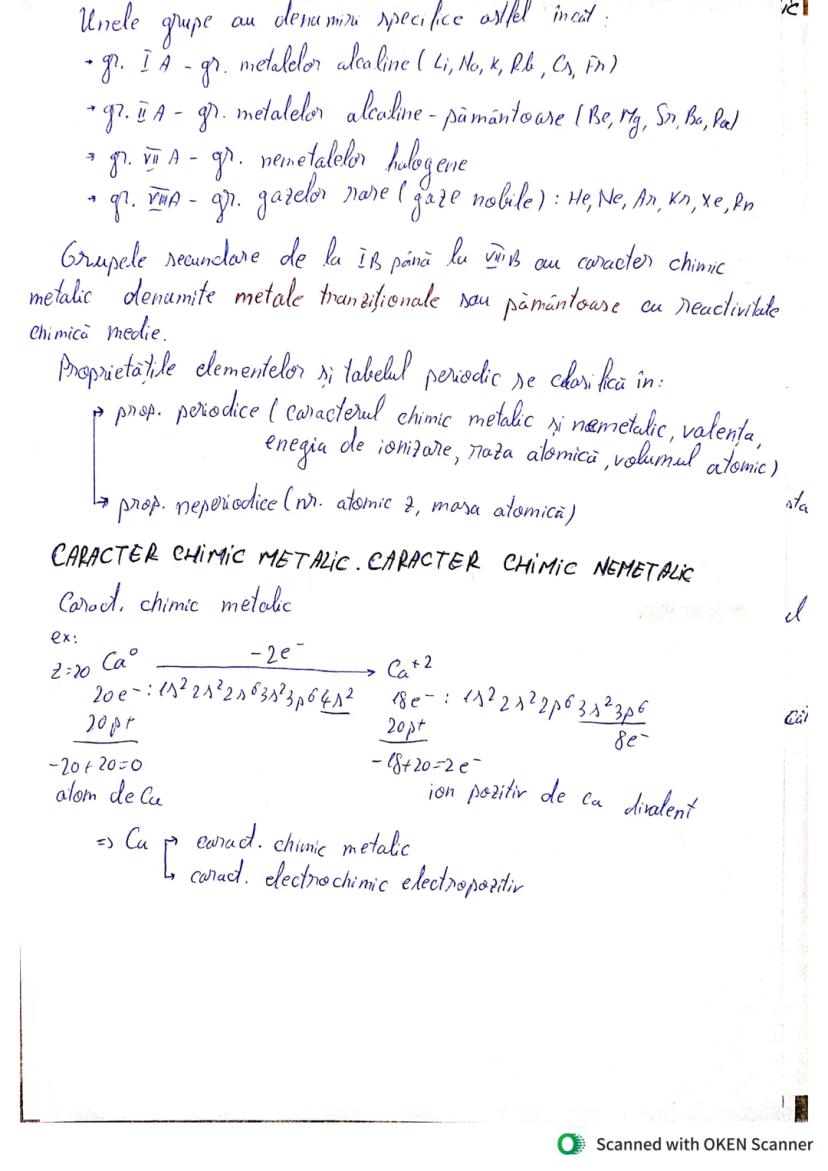 Unele grupe au denumiri specifice astfel încât:
→ gr. I A - gr. metalelor alcaline (Li, Na, K, Rb, Cs, Fr)
→ gr. II A - gr. metalelor alcaline-pământoase (Be, Mg, Sr, Ba, Ra)
→ gr. VII A - gr. nemetalelor halogene
→ gr. VIIIA - gr. gazelor rare (gaze nobile): He, Ne, Ar, Kr, Xe, Rn
Grupele secundare de la IB până la VIIIB au caracter chimic
metalic denumite metale tranziționale sau pământoase cu reactivitate
chimică medie.
Proprietățile elementelor și tabelul periodic se clasifică în:
→ prop. periodice (caracterul chimic metalic și nemetalic, valența,
enegia de ionizare, raza atomică, volumul atomic)
→ prop. neperiodice (nr. atomic z, masa atomică)
CARACTER CHIMIC METALIC. CARACTER CHIMIC NEMETALIC
Caract. chimic metalic
ex:
Z=20 Ca⁰ -2e⁻ → Ca⁺²
20e⁻: 1s² 2s² 2s⁶ 3s² 3p⁶ 4s² 18e⁻: 1s² 2s² 2p⁶ 3s² 3p⁶
20p+ 20p+ 8e⁻
-20+20=0 -18+20=2e⁻
atom de Ca ion pozitiv de Ca divalent
=> Ca → caract. chimic metalic
→ caract. electrochimic electropozitiv
Scanned with OKEN Scanner